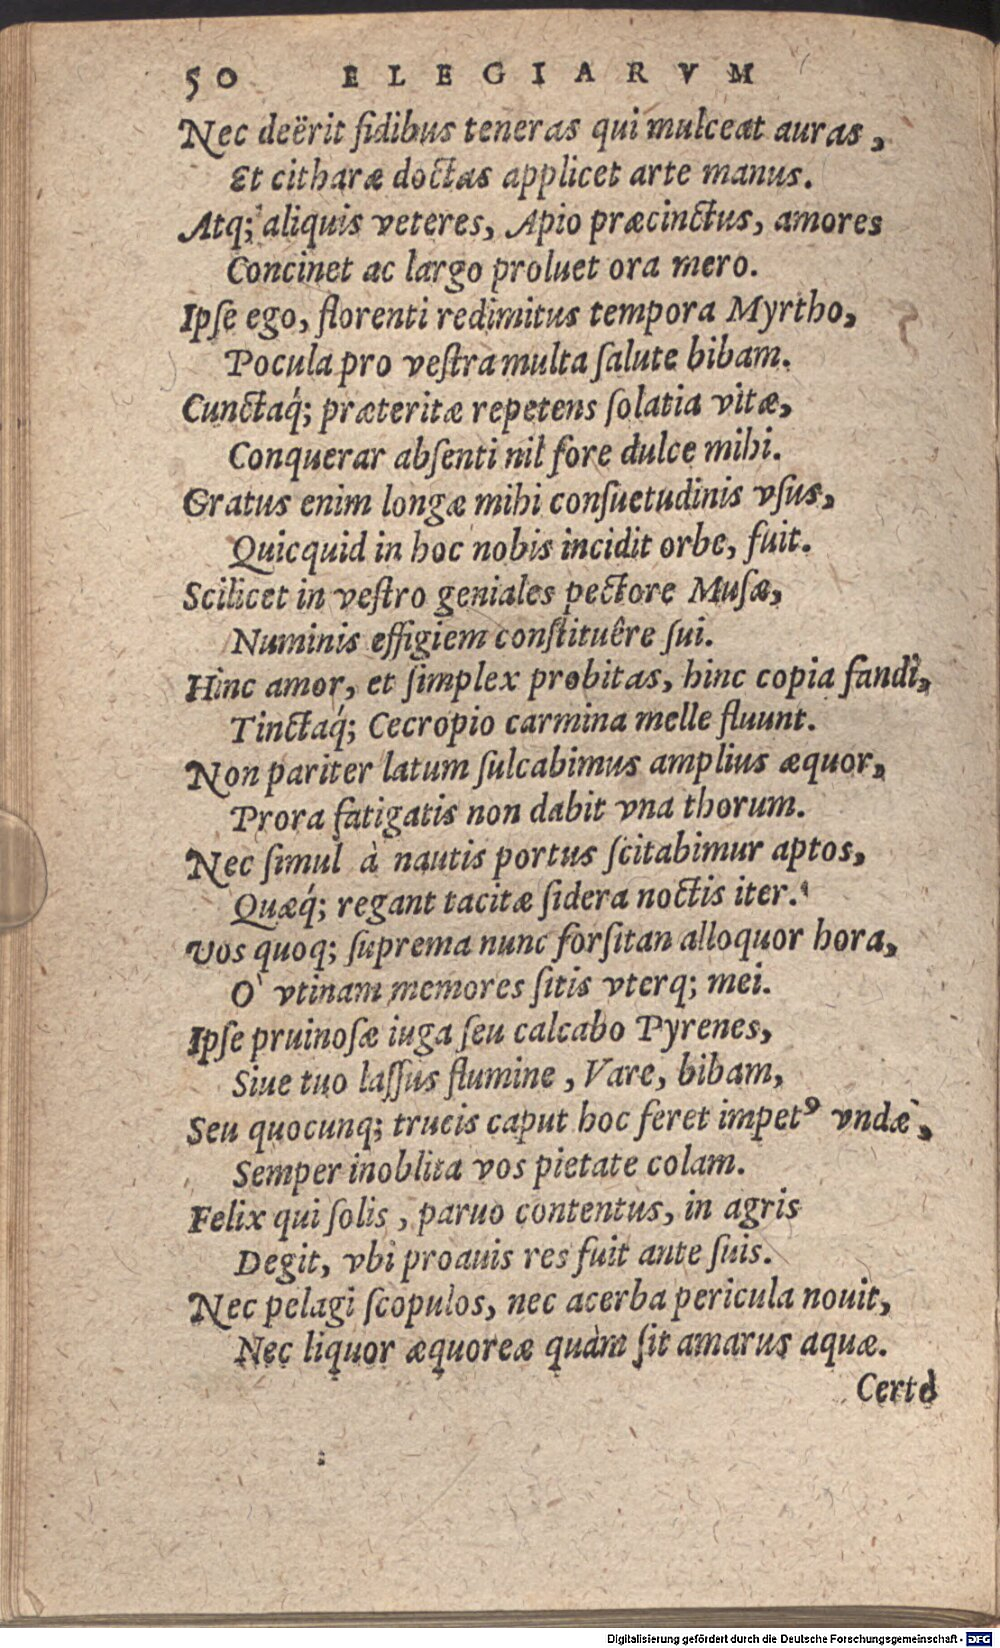 50 ELEGIARVM
Nec deërit ſidibus teneras qui mulceat auras,
Et citharæ doctas applicet arte manus.
Atq; aliquis veteres, Apio præcinctus, amores
Concinet ac largo proluet ora mero.
Ipſe ego, florenti redimitus tempora Myrtho,
Pocula pro veſtra multa ſalute bibam.
Cunctaq́; præteritæ repetens ſolatia vitæ,
Conquerar abſenti nil fore dulce mihi.
Gratus enim longæ mihi conſuetudinis vſus,
Quicquid in hoc nobis incidit orbe, fuit.
Scilicet in veſtro geniales pectore Muſæ,
Numinis effigiem conſtituêre ſui.
Hinc amor, et ſimplex probitas, hinc copia fandi,
Tinctaq́; Cecropio carmina melle fluunt.
Non pariter latum ſulcabimus amplius æquor,
Prora fatigatis non dabit vna thorum.
Nec ſimul à nautis portus ſcitabimur aptos,
Quæq́; regant tacitæ ſidera noctis iter.
Vos quoq; ſuprema nunc forſitan alloquor hora,
O` vtinam memores ſitis vterq; mei.
Ipſe pruinoſæ iuga ſeu calcabo Pyrenes,
Siue tuo laſſus flumine, Vare, bibam,
Seu quocunq; trucis caput hoc feret impetꝰ vndæ,
Semper inoblita vos pietate colam.
Felix qui ſolis, paruo contentus, in agris
Degit, vbi proauis res fuit ante ſuis.
Nec pelagi ſcopulos, nec acerba pericula nouit,
Nec liquor æquoreæ quàm ſit amarus aquæ.
Certè
Digitalisierung gefördert durch die Deutsche Forschungsgemeinschaft - DFG